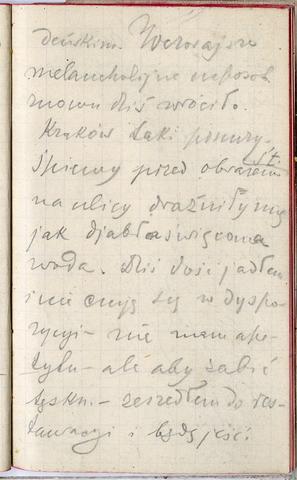 deńskim. Wczorajsze
melancholijne usposob.
znowu dziś wróciło.
Kraków taki ponury.
Śpiewy przed obrazem St.
na ulicy drażniły mię
jak djabła święcona
woda. Dziś dość jadłem
i nie czuję się w dyspo-
zycyi – nie mam ape-
tytu – ale aby zabić
tęskn. – zeszedłem do res-
tauracyi i będę jeść.